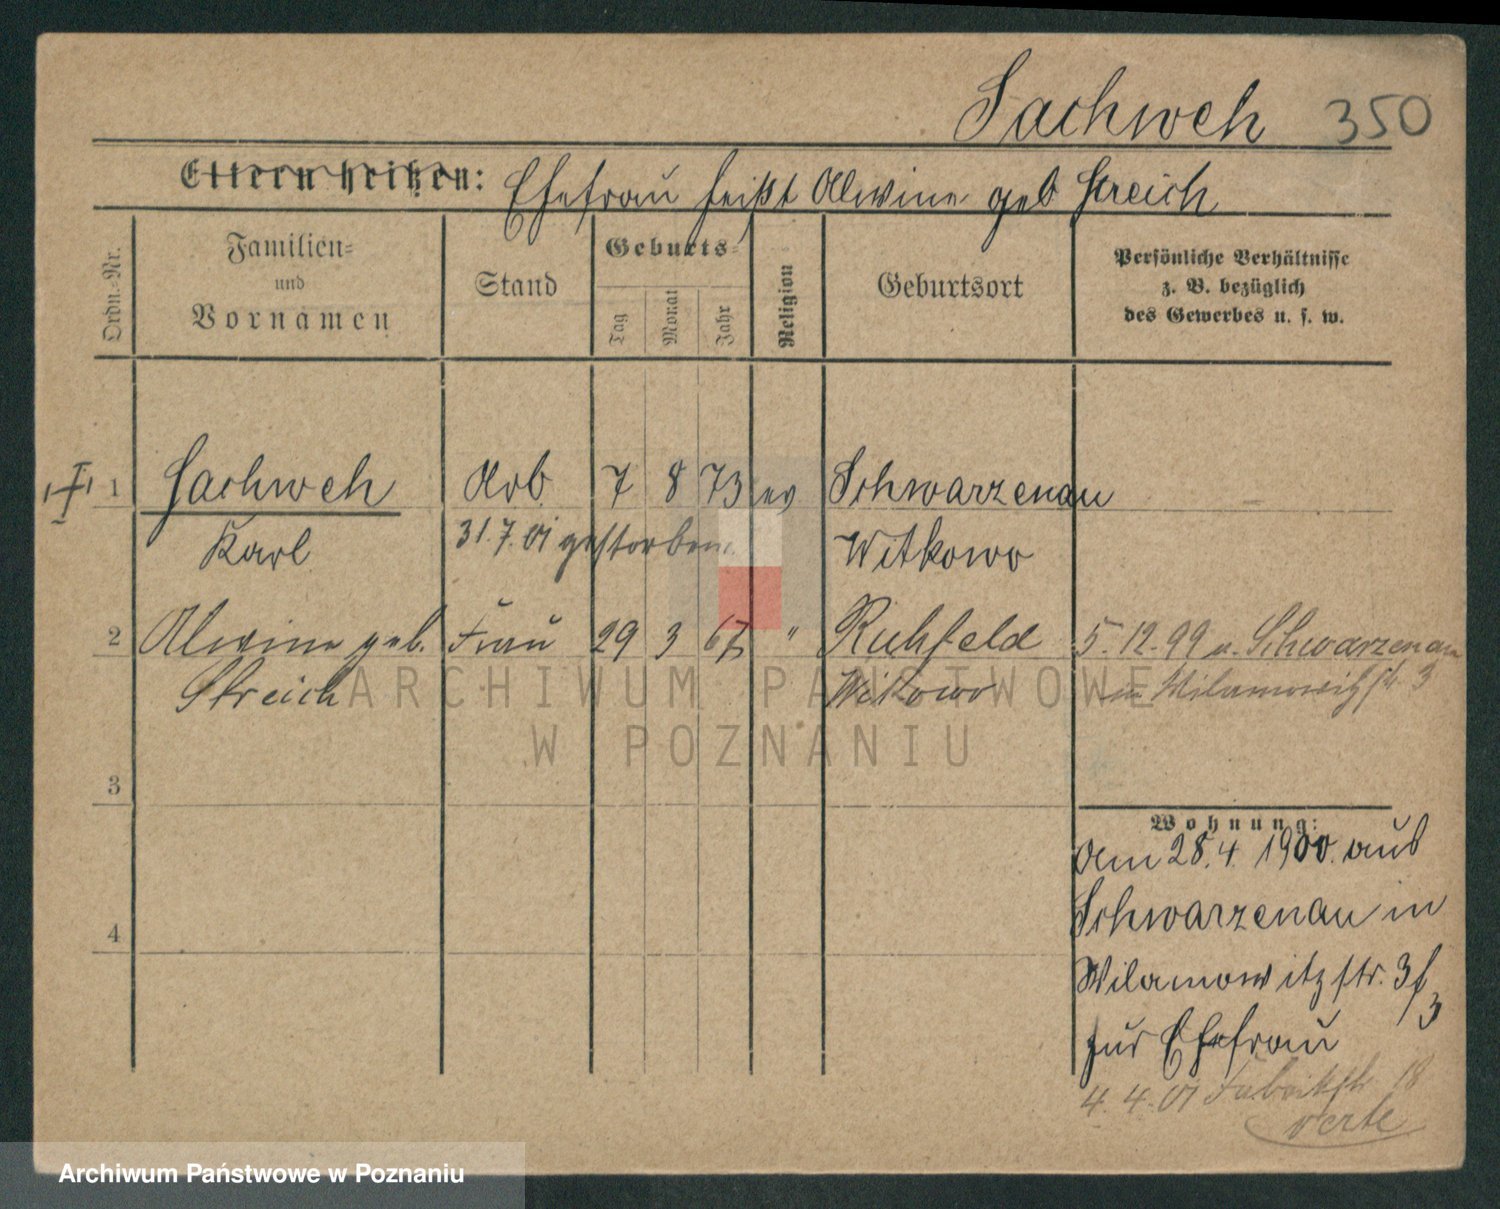 Sachweh 350
Eltern heißen: Ehefrau heißt Alwine geb Streich
Ordn.-Nr.
Familien- und Vornamen
Stand
Geburts-
Tag
Monat
Jahr
Religion
Geburtsort
Persönliche Verhältnisse
z. B. bezüglich
des Gewerbes u. s. w.
1 Sachweh Arb. 7 8 73 ev Schwarzenau
Karl 31.7.01 gestorben. Witkowo
2 Alwine geb. Frau 29 3 67 " Ruhfeld 5.12.99 v. Schwarzenau
Streich Witkowo in Wilamowitzstr 3
ARCHIWUM PAŃSTWOWE
W POZNANIU
3
Wohnung:
Am 28.4.1900. aus
Schwarzenau in
4
Wilamowitzstr. 3f/3
zur Ehefrau
4.4.01 Fabrikstr 18
verte
Archiwum Państwowe w Poznaniu